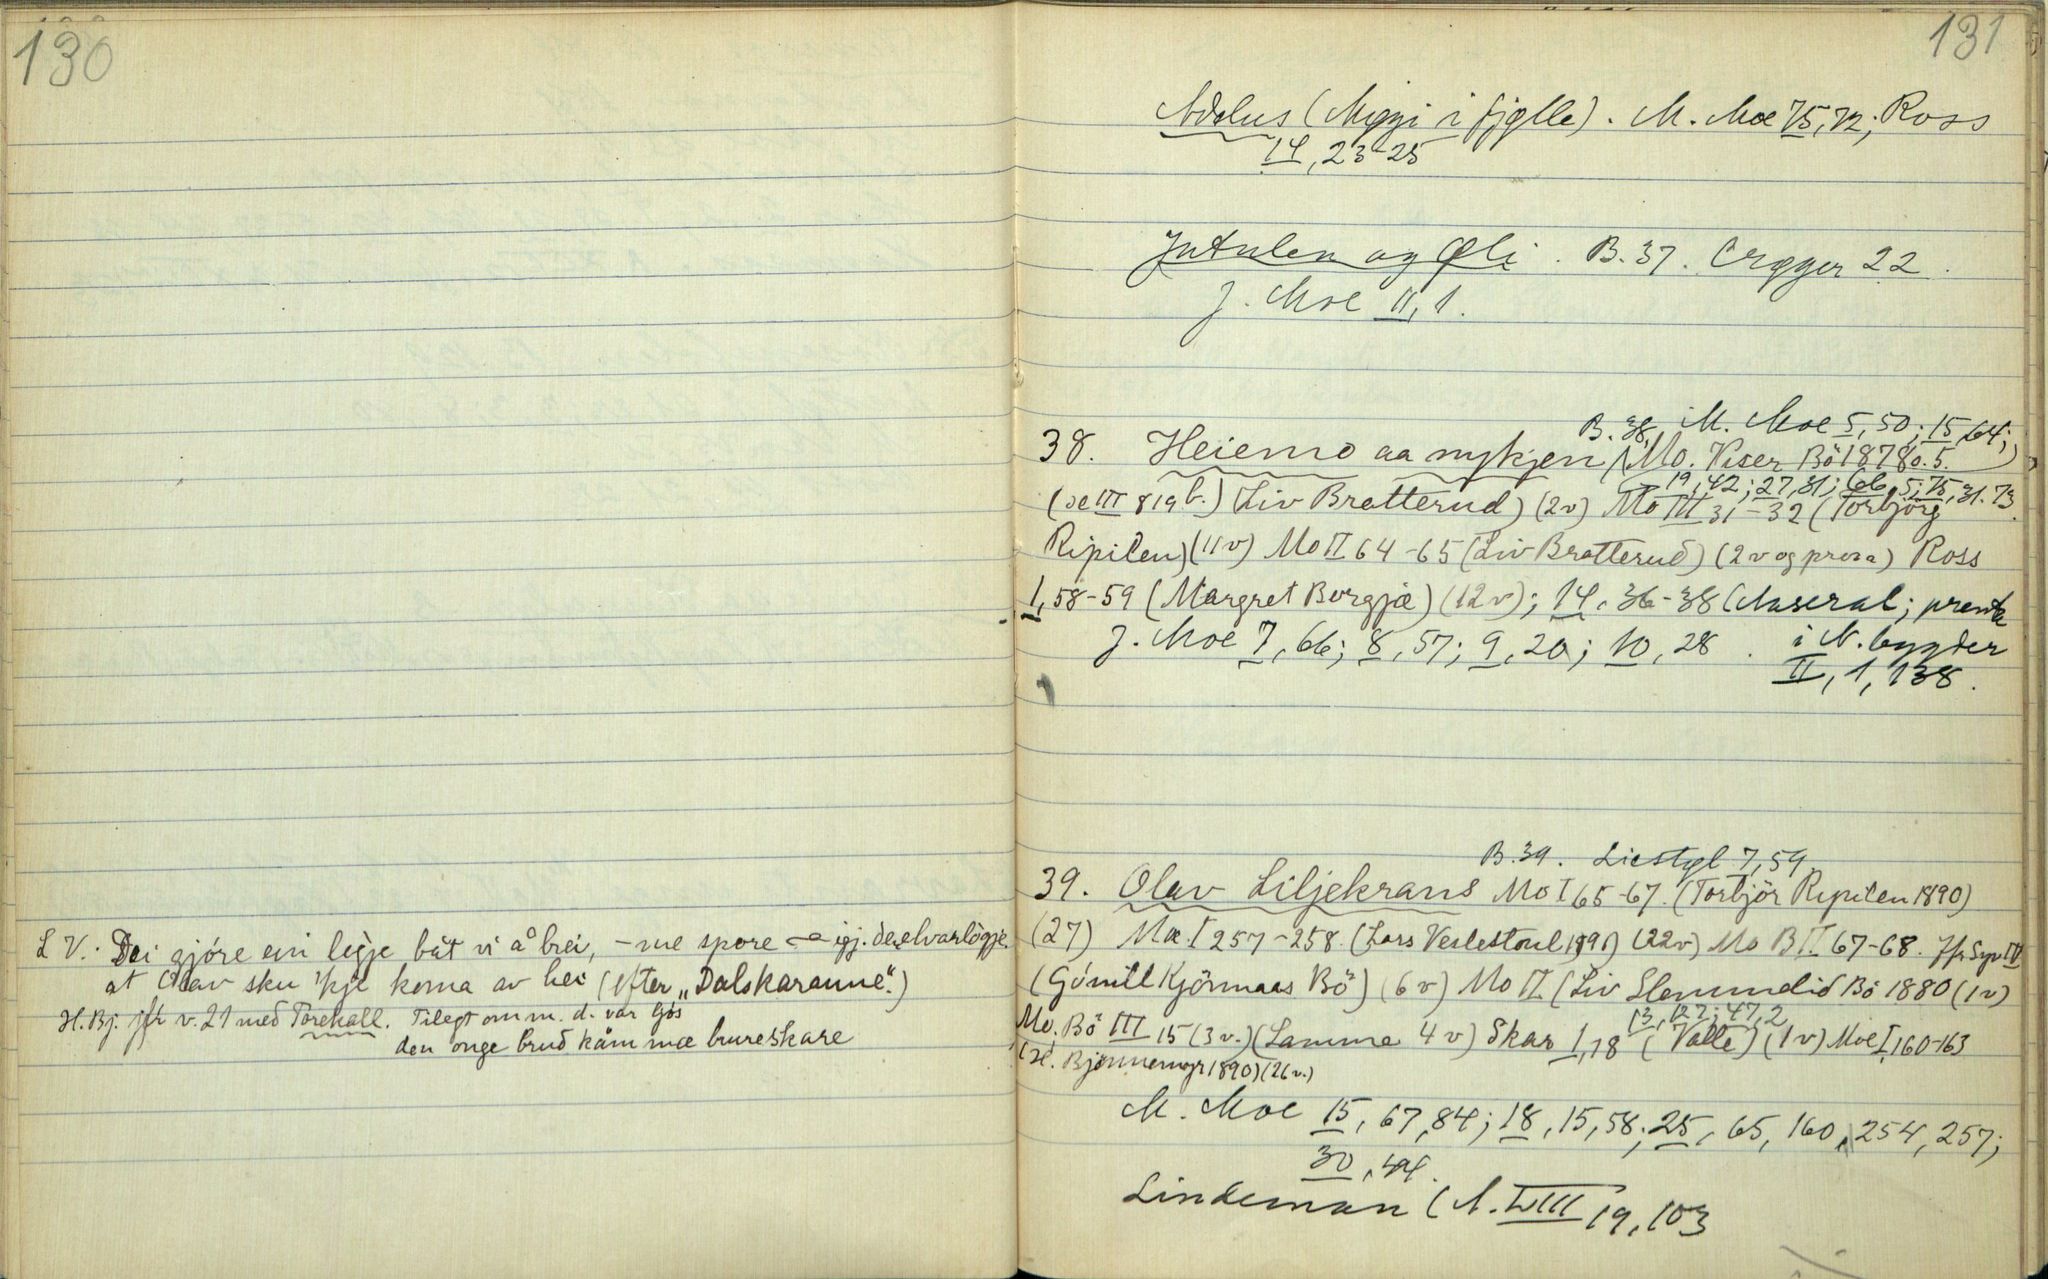 130
L V. Dei gjóre ein légje båt vi å brei, – me spore – igj. de elvarlógje.
at Olav sku 'kje koma av hei (efter „Dalskaranne“.)
H. Bj. jfr v. 21 með Torekall. Tilegt om m. d. var Gós
den onge bruð kåm mæ brureskare
131
(Myggi i fjølle). M. Moe 75, 72; Ross
14, 23-25
Jutulen og Øli. B. 37. Crøger 22.
J. Moe II, 1.
B. 38, M. Moe 5, 50; 15, 64;
38. Heiemo aa nykjen (Mo. Viser Bö 1878 o. 5.)
19, 42; 27, 31; 66, 5; 75, 31. 73.
(se III 819 b.) (Liv Bratterud) (2v) Mo III 31-32 (Torbjörg
Ripilen) (11v) Mo II 64-65 (Liv Bratteruð) (2v og prosa) Ross
1, 58-59 (Margret Borgjæ) (12v); 14, 36-38 (Aaseral; prenta
J. Moe 7, 66; 8, 57; 9, 20; 10, 28. i N. bygder
II, 1, 138.
B. 39. Liestøl 7, 59
39. Olav Liljekrans Mo I 65-67. (Torbjör Ripilen 1890)
(27) Mo. I 257-258. (Lars Veslestoul 1891) (22v) Mo B II 67-68. Jfr Syv IV
(Gónill Kjönnaas Bö) (6v) Mo II (Liv Slemmelið Bö 1880 (1v)
13, 127; 47, 2
Mo. Bö III 15 (3v.) (Samme 4v) Skar I, 18 (Valle) (1v) Moe I, 160-163
(H. Bjönnemyr 1890) (26v.)
M. Moe 15, 67, 84; 18, 15, 58; 25, 65, 160, 254, 257;
30, 44.
Lindeman (N. LVIII 19, 103